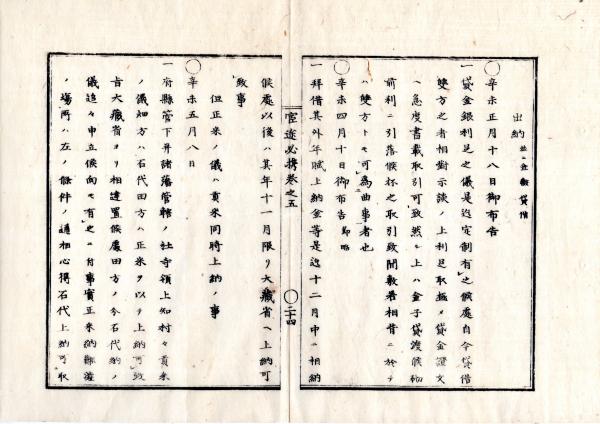 出納 並ニ金穀貸借
○辛未正月十八日御布告
一貸金銀利足之儀是迄定制有之候處自今貸借
雙方之者相對示談ノ上利足取極メ貸金證文
ヘ急度書載取引可致然ル上ハ金子貸渡候砌
前利ニ引落候杯之取引致間敷若相背ニ於テ
ハ雙方トモ可為曲事者也
○辛未四月十日御布告 節略
一拜借其外年賦上納金等是迄十二月中ニ相納
官途必携巻之五
○二十四
候處以後ハ其年十一月限リ大藏省ヘ上納可
致事
但正米ノ儀ハ貢米同時上納ノ事
○辛未五月八日
一府縣管下幷諸藩管轄ノ社寺領上知村々貢米
ノ儀知方ハ石代田方ハ正米ヲ以テ上納可致
旨大藏省ヨリ相達置候處田方ノ分石代納ノ
儀追々申立候向モ有之ニ付事實正米納難澁
ノ場所ハ左ノ條件ノ通相心得石代上納可取